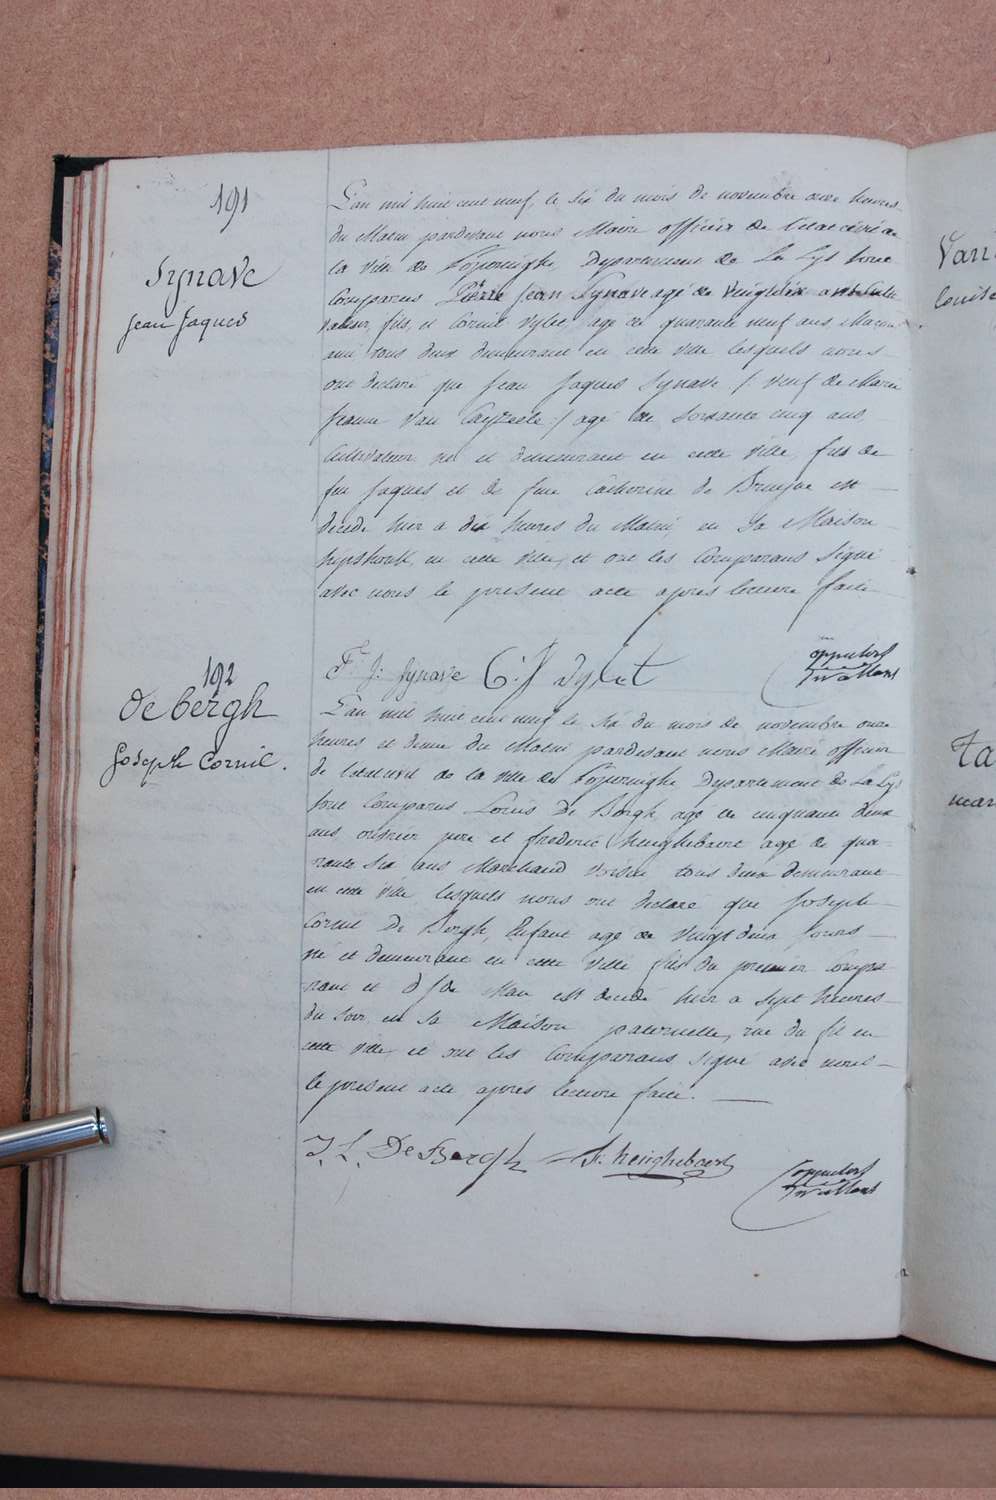 191
Synave
Jean Jaques
L'an mil huit cent neuf, le six du mois de novembre onze heures
du Matin pardevant nous Maire officier de l'état civil de
la ville de Poperinghe, Departement de La Lys sont
Comparus Pierre Jean Synave agé de vingt six ans Culti
vateur, fils, et Cornil Vylet, agé de quarante neuf ans, Macon
ami tous deux demeurant en cette ville lesquels nous
ont declaré que Jean Jaques Synave /: veuf de Marie
Jeanne Van Cayzeele :/ agé de soixante cinq ans,
Cultivateur né et demeurant en cette ville, fils de
feu Jaques et de feue Catherine de Bruyne est
decedé hier a dix heures du Matin, en sa Maison
en cette ville, et ont les Comparans signé
avec nous le present acte apres lecture faite
J: Synave
192
de bergh
Joseph Cornil.
L'an mil huit cent neuf le six du mois de novembre onze
heures et demie du Matin pardevant nous Maire officier
de l'etat civil de la ville de Poperinghe Departement de La Lys
sont Comparus Louis De Bergh, agé de cinquante deux
ans, ouvrier pere et frederic Henghebaert agé de qua-
rante six ans Marchand voisin tous deux demeurant
en cette ville lesquels nous ont declaré que Joseph
Cornil De Bergh, Enfant agé de vingt deux Jours
né et demeurant en cette ville fils du premier Compa
rant et de Man est decedé hier a sept heures
du soir, en sa Maison paternelle, rue du fil en
cette ville, et ont les Comparans signé avec nous
le present acte apres lecture faite.
J. L. De Bergh F. henghebaert
Van
Louise
Ta
mar